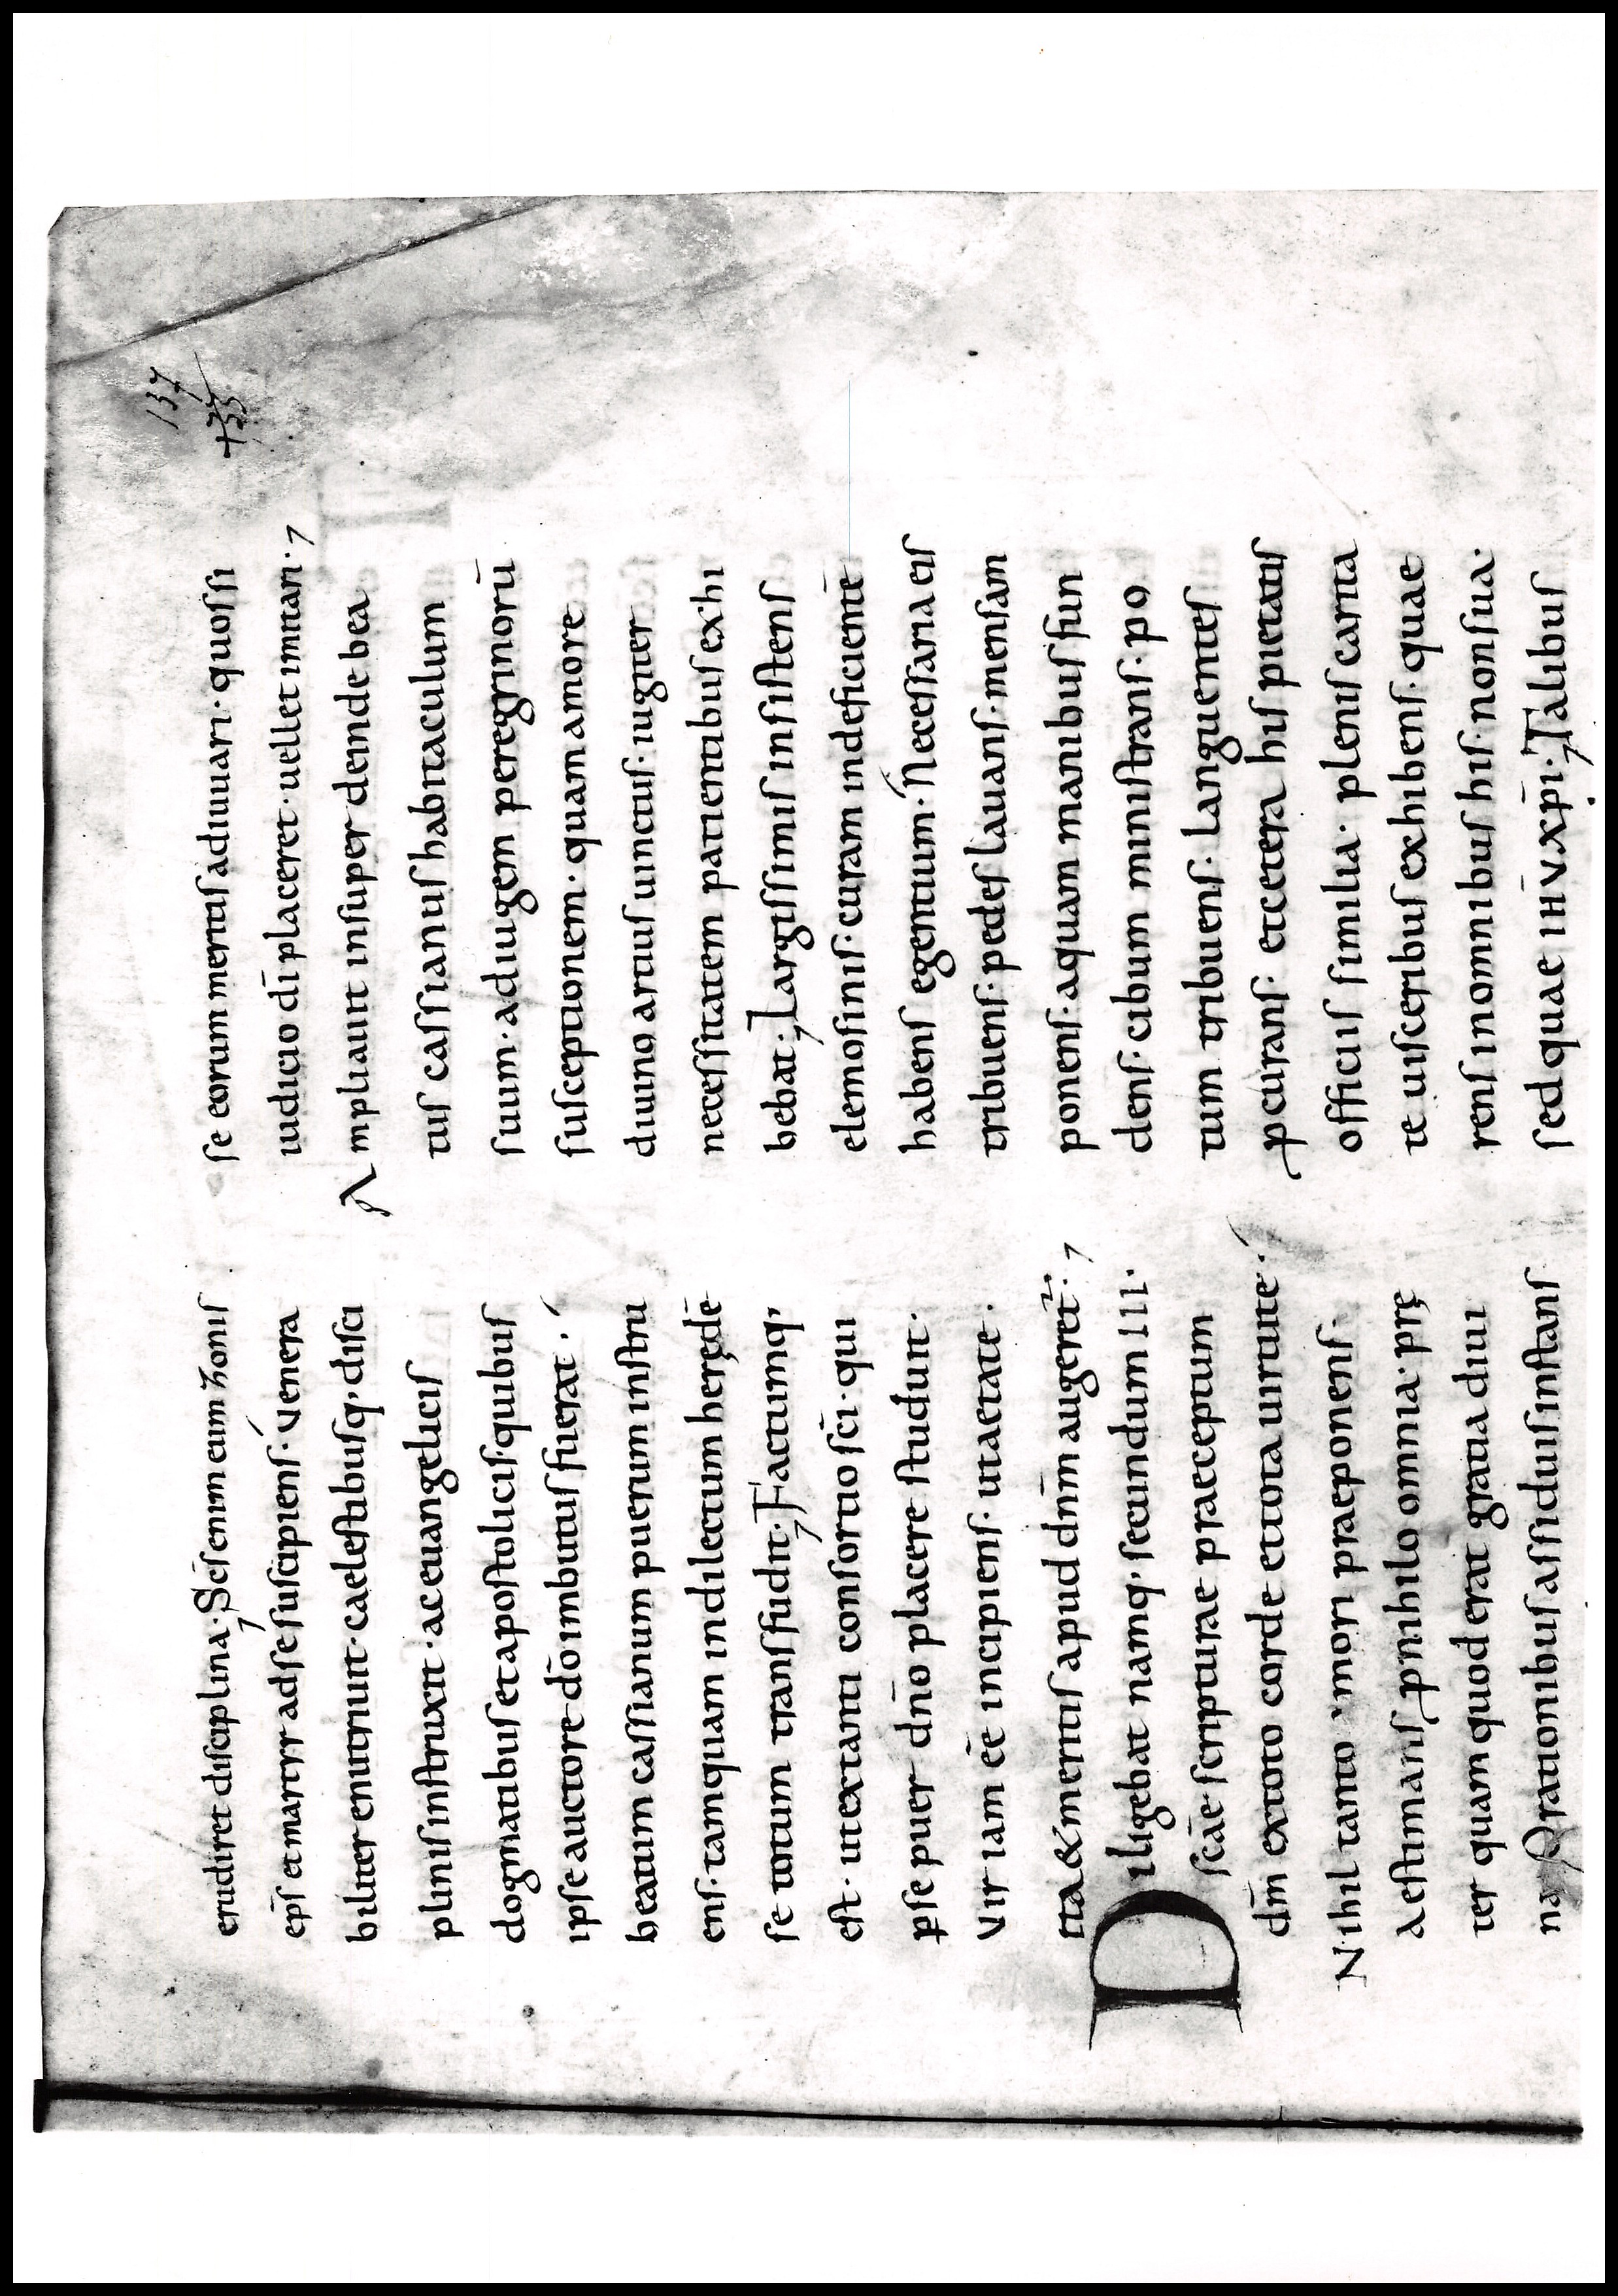 137
+33
erudiret disciplina· Scs enim eum zonis
eps̄ et martyr ad se suscipiens· Venera
biliter enutriuit· caelestibusq; disci
plinis instruxit· ac euangelicis
dogmatibus et apostolicis· quibus
ipse auctore dō imbutus fuerat·
beatum cassianum puerum instru
ens· tamquam in dilectum heredē
se totum transfudit· Factumq;
est· ut extanti consortio sc̄i· qui
ꝑse puer dn̄o placere studuit·
Vir iam eē incipiens· uita etate·
ita & meritis apud dn̄m augeret·
Diligebat namq; secundum III·
scāe scripturae praeceptum
dm̄ ex toto corde et tota uirtute·
Nihil tanto amori praeponens·
Aestimans ꝓ nihilo omnia· prę
ter quam quod erat gratia diui
na Orationibus assiduis instans
se eorum meritis adiuuari· quos si
iudicio dī placeret· uellet imitari·
Ampliauit insuper deinde bea
tus cassianus habitaculum
suum· ad iugem peregrinorū
susceptionem· quam amore
diuino artius uinctus· iugiter
necessitatem patientibus exhi
bebat· Largissimis insistens
elemosinis· curam indeficientē
habens egentium· Necessaria eis
tribuens· pedes lauans· mensam
ponens· aquam manibus fun
dens· cibum ministrans· po
tum tribuens· languentes
ꝓcurans· et cetera his pietatis
officiis similia· plenis carita
te uisceribus exhibens· quae
rens in omnibus his· non sua·
sed quae ih̄u xp̄i· Talibus